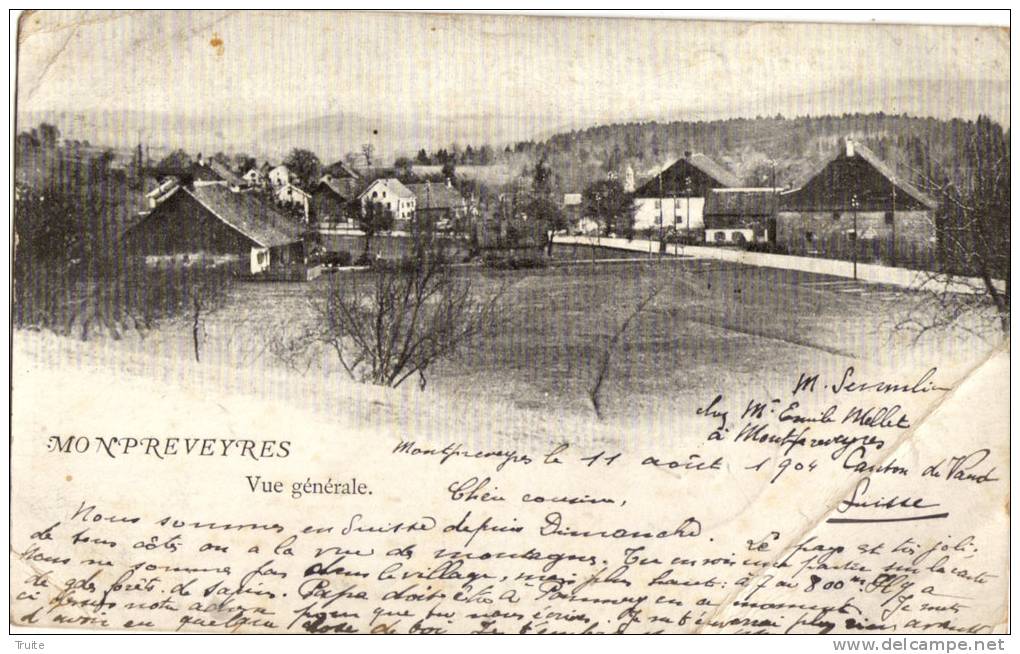 M. Sermulin
chez Mr Emile Mellet
à Montpreveyres
Canton de Vaud
Suisse
MONPREVEYRES
Vue générale.
Montpreveyres le 11 août 1904
Chère cousine,
Nous sommes en Suisse depuis Dimanche. Le pays est très joli.
de tous côtés on a la vue de montagne. Tu en vois une partie sur la carte
Nous ne sommes pas dans le village, mais plus haut: à 7 ou 800 m. Il y a
de gdes forêts de sapins. Papa doit être à en ce moment. Je mets
ci notre adresse pour que tu nous écrives. Je
d'avoir en quelque
Truite
http://www.delcampe.net